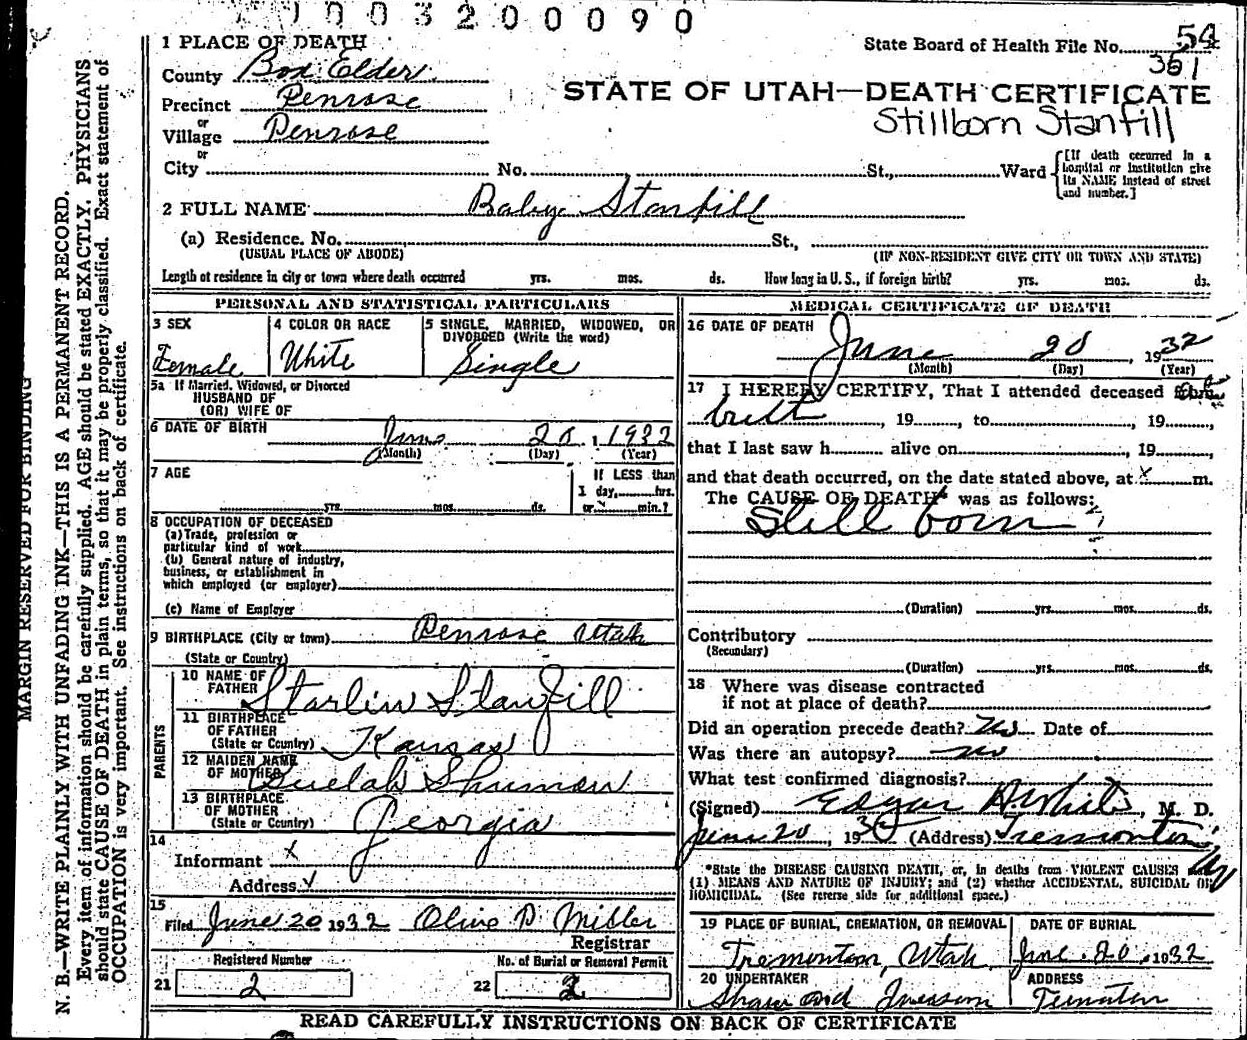 1003200090
1 PLACE OF DEATH
State Board of Health File No. 54
361
County Box Elder
STATE OF UTAH—DEATH CERTIFICATE
Precinct Penrose
Stillborn Stanfill
or
Village Penrose
or
City No. St., Ward [If death occurred in a hospital or institution give its NAME instead of street and number.]
2 FULL NAME Baby Stanfill
(a) Residence. No. St.,
(USUAL PLACE OF ABODE) (IF NON-RESIDENT GIVE CITY OR TOWN AND STATE)
Length of residence in city or town where death occurred yrs. mos. ds. How long in U. S., if foreign birth? yrs. mos. ds.
PERSONAL AND STATISTICAL PARTICULARS
3 SEX
Female
4 COLOR OR RACE
White
5 SINGLE, MARRIED, WIDOWED, OR
DIVORCED (Write the word)
Single
5a If Married, Widowed, or Divorced
HUSBAND OF
(OR) WIFE OF
6 DATE OF BIRTH June 20, 1932
(Month) (Day) (Year)
7 AGE
yrs. mos. ds.
If LESS than
1 day, hrs.
or min.?
8 OCCUPATION OF DECEASED
(a) Trade, profession or
particular kind of work
(b) General nature of industry,
business, or establishment in
which employed (or employer)
(c) Name of Employer
9 BIRTHPLACE (City or town) Penrose Utah
(State or Country)
PARENTS
10 NAME OF
FATHER Starlin Stanfill
11 BIRTHPLACE
OF FATHER
(State or Country) Kansas
12 MAIDEN NAME
OF MOTHER Buelah Shuman
13 BIRTHPLACE
OF MOTHER
(State or Country) Georgia
14
Informant x
Address
15
Filed June 20 1932 Olive P. Miller
Registrar
Registered Number
21 2
No. of Burial or Removal Permit
22 2
MEDICAL CERTIFICATE OF DEATH
16 DATE OF DEATH
June 20, 1932
(Month) (Day) (Year)
17 I HEREBY CERTIFY, That I attended deceased at
birth, 19, to, 19,
that I last saw h alive on, 19,
and that death occurred, on the date stated above, at x m.
The CAUSE OF DEATH* was as follows:
Still born
(Duration) yrs. mos. ds.
Contributory
(Secondary)
(Duration) yrs. mos. ds.
18 Where was disease contracted
if not at place of death?
Did an operation precede death? No Date of
Was there an autopsy? no
What test confirmed diagnosis?
(Signed) Edgar White, M. D.
June 20, 19 (Address) Tremonton
*State the DISEASE CAUSING DEATH, or, in deaths from VIOLENT CAUSES
(1) MEANS AND NATURE OF INJURY; and (2) whether ACCIDENTAL, SUICIDAL OR
HOMICIDAL. (See reverse side for additional space.)
19 PLACE OF BURIAL, CREMATION, OR REMOVAL
Tremonton, Utah
DATE OF BURIAL
June 20, 1932
20 UNDERTAKER
Shaw and Iverson
ADDRESS
READ CAREFULLY INSTRUCTIONS ON BACK OF CERTIFICATE
MARGIN RESERVED FOR BINDING
N. B.—WRITE PLAINLY WITH UNFADING INK—THIS IS A PERMANENT RECORD.
Every item of information should be carefully supplied. AGE should be stated EXACTLY. PHYSICIANS
should state CAUSE OF DEATH in plain terms, so that it may be properly classified. Exact statement of
OCCUPATION is very important. See instructions on back of certificate.